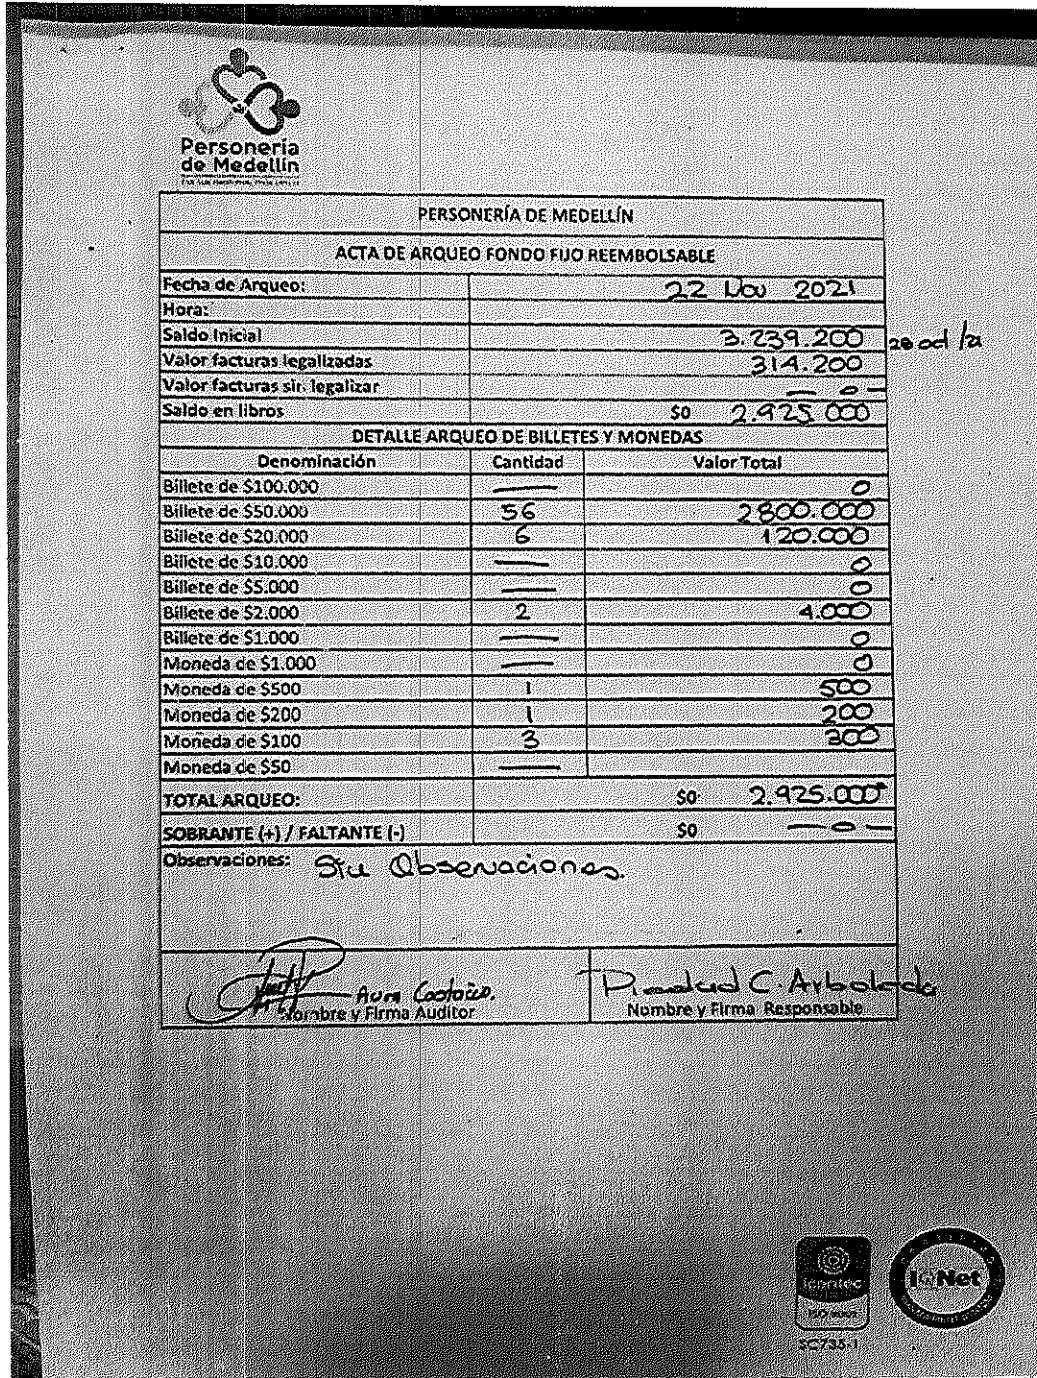 Personería
de Medellín
PERSONERÍA DE MEDELLÍN
ACTA DE ARQUEO FONDO FIJO REEMBOLSABLE
Fecha de Arqueo: 22 Nov 2021
Hora:
Saldo Inicial 3.239.200 28 oct /21
Valor facturas legalizadas 314.200
Valor facturas sin legalizar — 0 —
Saldo en libros $0 2.925.000
DETALLE ARQUEO DE BILLETES Y MONEDAS
Denominación Cantidad Valor Total
Billete de $100.000 — 0
Billete de $50.000 56 2800.000
Billete de $20.000 6 120.000
Billete de $10.000 — 0
Billete de $5.000 — 0
Billete de $2.000 2 4.000
Billete de $1.000 — 0
Moneda de $1.000 — 0
Moneda de $500 1 500
Moneda de $200 1 200
Moneda de $100 3 300
Moneda de $50 —
TOTAL ARQUEO: $0 2.925.000
SOBRANTE (+) / FALTANTE (-) $0 — 0 —
Observaciones: Sin Observaciones.
Aura Castaño. Piedad C. Arboleda
Nombre y Firma Auditor Nombre y Firma Responsable
icontec
IQNet
ISO 9001
SC735-1